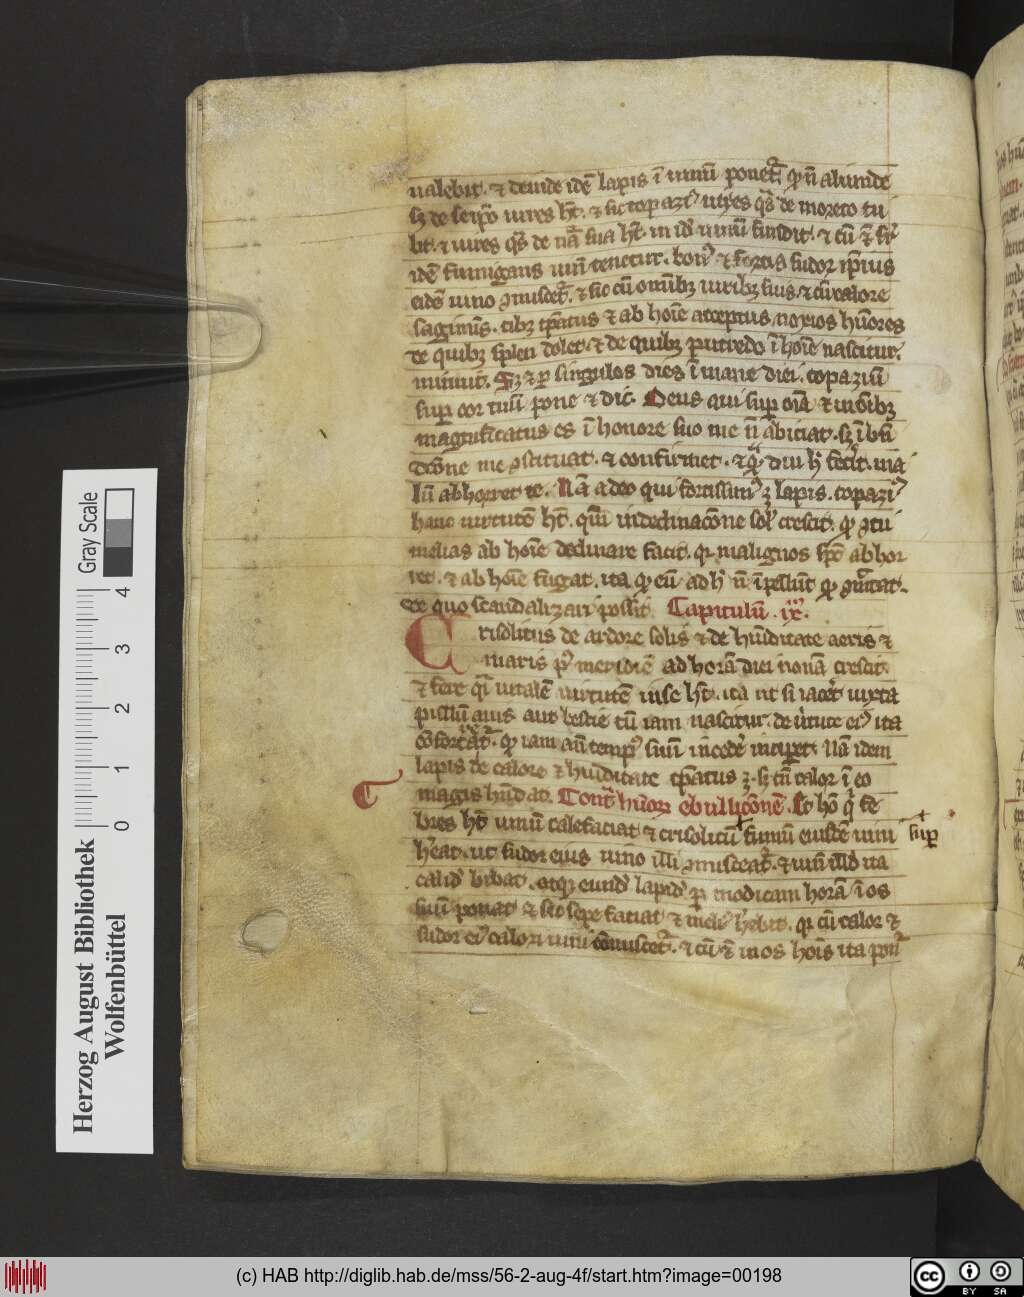 ualebit. ⁊ deinde idē lapis ī uinū ponet᷑ qͥ n̄ abinde
sʒ de seip̄o uires hꝫ. ⁊ sic topazi᷒ uires qͣs de moreto tu
lit. ⁊ uires qͣs de nā sua hꝫ. in id uinū fundit. ⁊ cū
idē fumigans uinū tenetur. bon᷒ ⁊ fortis sudor ip̄ius
eidē uino ꝯmiscet᷑. ⁊ sic cū om̄ibꝫ uiribꝫ suis ⁊ cū calore
sagiminis. cibꝫ tꝑatus ⁊ ab hoīe acceptus, noxios hūores
de quibꝫ splen dolet. ⁊ de quibꝫ putredo ī hoīe nascitur.
minuit. Sʒ ⁊ ꝑ singulos dies ī mane diei. topaziū
suꝑ cor tuū pone ⁊ dic. Deus qui suꝑ oīa ⁊ in oībꝫ
magnificatus es ī honore suo me n̄ abiciat. sʒ ī bn̄
dc̄one me ꝯstituat. ⁊ confirmet. ⁊ qͣ diu h̄ fecīs. ma
lū abhorret te. Nā a deo qui fortissim᷒ ē lapis. topazi᷒
hanc uirtutē hꝫ. qm̄ in declinac̄one sol᷒ crescit. qͥ ꝯtu
melias ab hoīe declinare facit. qꝛ malignos sp̄c abhor
ret. ⁊ ab hoīe fugat. ita qͥ cū ad h̄ n̄ ipellūt
de quo scandalizari possit. Capitulū .ix.
Crisolitus de ardore solis ⁊ de hūiditate aeris ⁊
maris p᷒ meridiē ad horā diei nonā crescit.
⁊ fere qͣi uitalē uirtutē in se hꝫ. ita ut si iacet iuxta
pullū auis aut bestie cū iam nascitur. de uͥtute ei᷒ ita
ꝯfortat᷑. qͥ iam an̄ temp᷒ suū incede incipiet. Nā idem
lapis de calore ⁊ hūiditate tꝑatus ē. sʒ tn̄ calor ī eo
magis hūdat. Contͣ hūorū ebullic̄onē. Et hō qͥ fe
bres hꝫ uinū calefaciat ⁊ crisolitū + fumū eiusdē uini + suꝑ
teneat. ut sudor eius uino illi ꝯmisceat᷑. ⁊ uinū illd ita
calid᷒ bibat. atqꝫ eund᷒ lapid᷒ ꝑ modicam horā ī os
suū ponat ⁊ sic sepe faciat ⁊ meli᷒ hēbit. qꝛ cū calor ⁊
sudor ei᷒ calori uini ꝯmiscet᷑. ⁊ cū in os hoīs ita ponit᷑
Herzog August Bibliothek
Wolfenbüttel
0 1 2 3 4
Gray Scale
(c) HAB http://diglib.hab.de/mss/56-2-aug-4f/start.htm?image=00198
cc BY SA